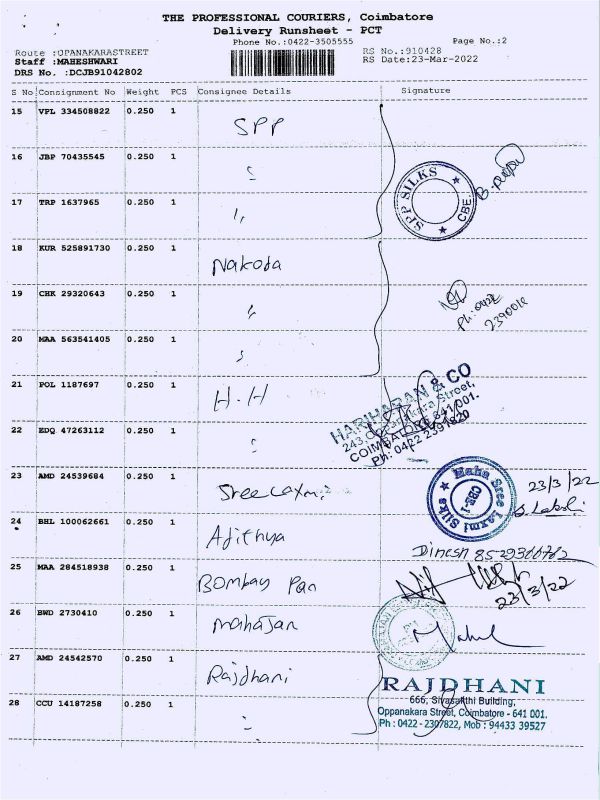 THE PROFESSIONAL COURIERS, Coimbatore
Delivery Runsheet - PCT
Phone No.:0422-3505555
Page No.:2
Route :OPANAKARASTREET
RS No.:910428
Staff :MAHESHWARI
RS Date:23-Mar-2022
DRS No. :DCJB91042802
S No Consignment No Weight PCS Consignee Details Signature
15 VPL 334508822 0.250 1 SPP
16 JBP 70435545 0.250 1 "
SPP SILKS CBE.
17 TRP 1637965 0.250 1 "
18 KUR 525891730 0.250 1 Nakoda
19 CHK 29320643 0.250 1 "
Ph: 0422
2390010
20 MAA 563541405 0.250 1 "
21 POL 1187697 0.250 1 H.H
HARIHARAN & CO
243, Oppanakara Street,
COIMBATORE 641 001.
Ph: 0422
22 EDQ 47263112 0.250 1 "
23 AMD 24539684 0.250 1 Sree Laxmi
Maha Sree Laxmi Silks CBE-1
23/3/22
24 BHL 100062661 0.250 1 Adithya
Dinesh
25 MAA 284518938 0.250 1 Bombay Pan
23/3/22
26 BWD 2730410 0.250 1 mahajan
27 AMD 24542570 0.250 1 Rajdhani
RAJDHANI
28 CCU 14187258 0.250 1 "
666, Sivasakthi Building,
Oppanakara Street, Coimbatore - 641 001.
Ph : 0422 - 2307822, Mob : 94433 39527